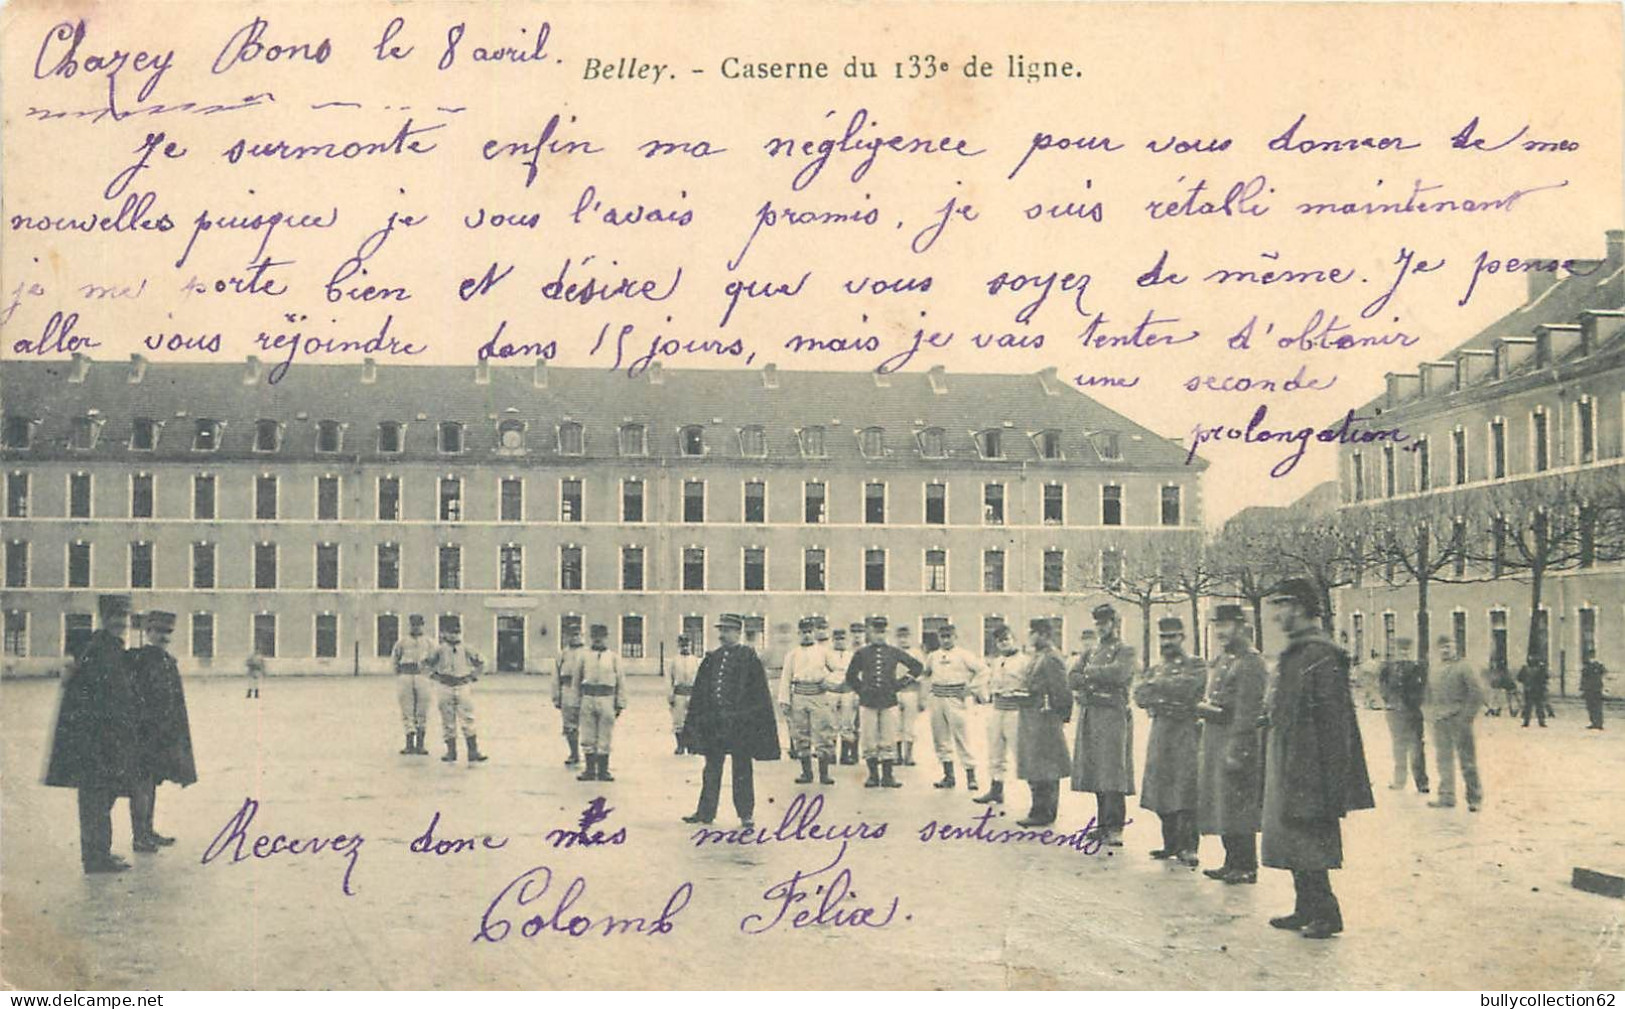 Chazey Bons le 8 avril.
Belley. - Caserne du 133e de ligne.
Je surmonte enfin ma négligence pour vous donner de mes
nouvelles puisque je vous l'avais promis, je suis rétabli maintenant
je me porte bien et désire que vous soyez de même. Je pense
aller vous rejoindre dans 15 jours, mais je vais tenter d'obtenir
une seconde
prolongation.
Recevez donc mes meilleurs sentiments.
Colomb Félix.
bullycollection62